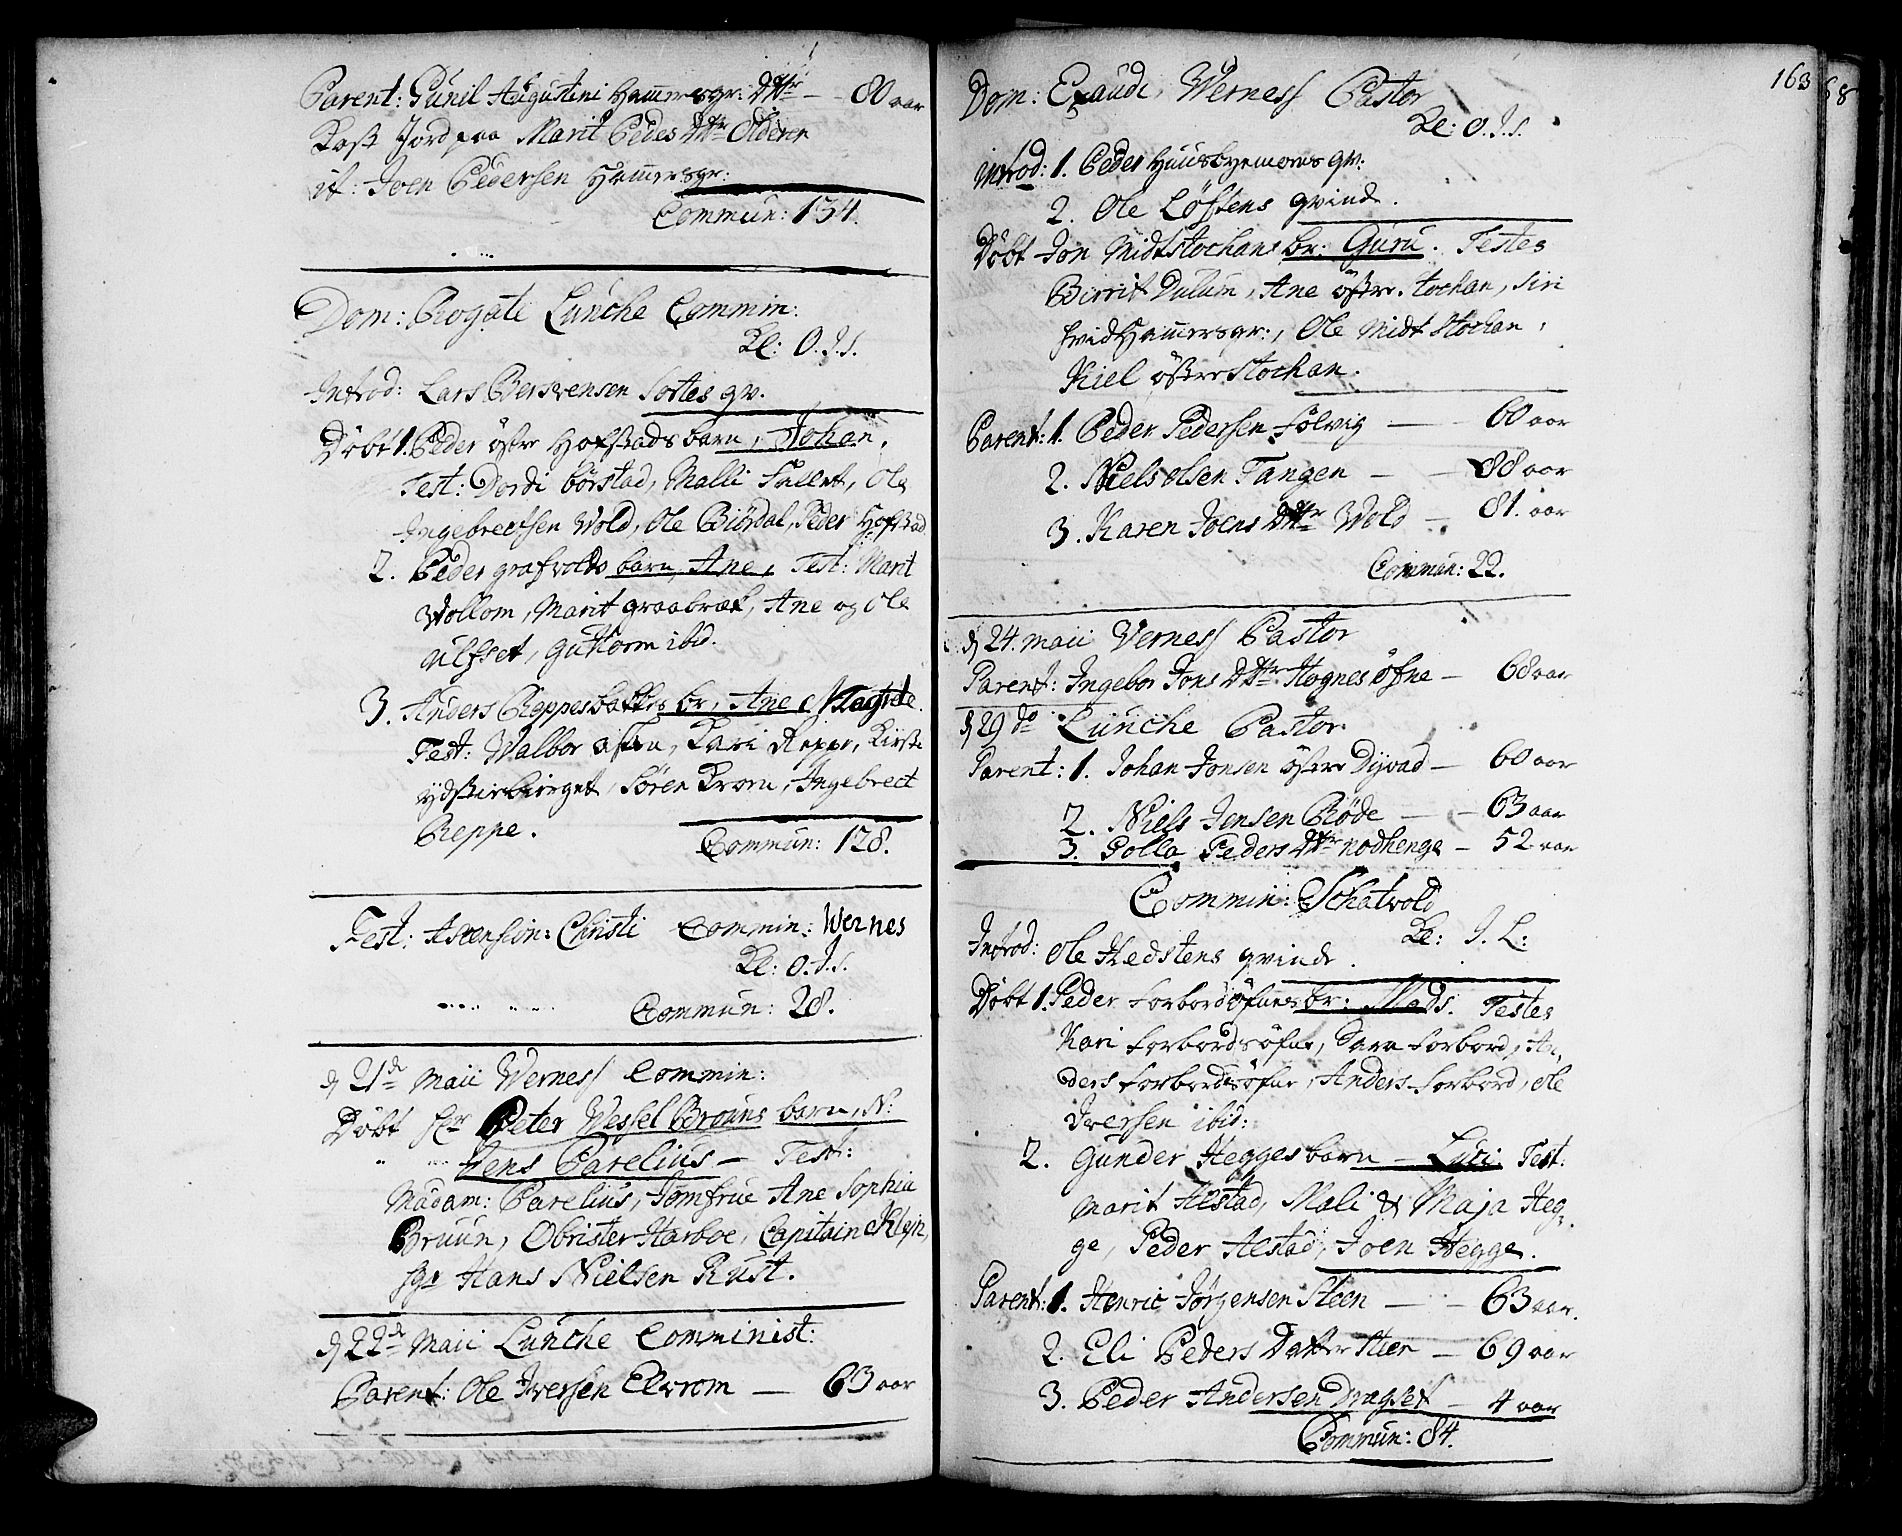 Parent: Gunil Augustini Hammersgr: Dttr — 80 aar
Kast Jord paa Marit Peders Dttr Olderen
it: Joen Pedersen Hammersgr:
Commun: 134.
Dom: Rogate Lunche Commin:
Kl: O.J.S.
Introd: Lars Bersvensen Sortes qv.
Døbt 1. Peder østre Hofstads barn, Johan,
Test: Dordi børstad, Malli, Ole
Ingebrectsen Wold, Ole Biørdal, Peder Hofstad
2. Peder grafvolds barn, Ane, Test: Marit
Wollom, Marit graabræk, Ane og Ole
Ulfset, Guttorm ibid.
3. Anders Reppesbakks br, Ane Magrete.
Test: Walbor, Kari Reppe, Kirsti
ydstiebierget, Søren Krom, Ingebrect
Reppe.
Commun: 128.
Fest: Ascension: Christi Commin: Wernes
Kl: O.J.S.
Commun: 28.
d 21de Maii Verness Commin:
Døbt Hr Peter Wessel Bruuns barn, N:
Jens Parelius — Test:
Madam: Parelius, Jomfrue Ane Sophia
Bruun, Obrister Harboe, Capitain Klejn,
Sgr Hans Nielsen Rust.
d 22de Maii Lunche Comminist:
Parent: Ole Iversen Elvrom — 63 aar
163
68
Dom: Exaudi, Verness Pastor
Kl: O.J.S.
Introd: 1. Peder Huusbyemoens qv:
2. Ole Løftens qvinde.
Døbt Jon Midtstochans br: Guru. Testes
Birrit Dulum, Ane østre Stochan, Siri
hvid Hammersgr:, Ole Midt Stochan,
Kiel østre Stochan.
Parent: 1. Peder Pedersen Solvig — 60 aar
2. Niels Olsen Tangen — 88 aar
3. Karen Joens Dttr Wold — 81. aar
Commun: 22.
d 24. Maii Verness Pastor
Parent: Ingebor Jons Dttr Hognes øfne — 68 aar
d 29 do Lunche Pastor
Parent: 1. Johan Jonsen østre Dyvad — 60 aar
2. Niels Jensen Røde — 63 aar
3. Golla Peders Dttr nodhenge — 52 aar
Commin: Schatvold
Kl: J. L:
Introd: Ole Hedstens qvinde.
Døbt 1. Peder Forbordsøfnes br: Mads. Testes
Kari Forbordsøfne, Sara Forbord, An,
ders Forbordsøfne, Anders Forbord, Ole
Iversen ibid:
2. Gunder Hegges barn — Luci Test:
Marit Alstad, Mali & Maja Heg,
ge, Peder Alstad, Joen Hegge.
Parent: 1. Henric Jørgensen Steen — 63 aar.
2. Eli Peders Datter Steen — 69 aar
3. Peder Andersen Dragset — 4 aar
Commun: 84.